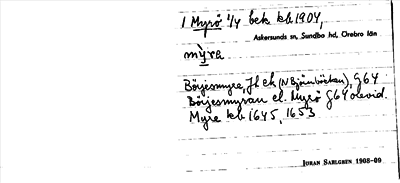 1 Myrö 1/4 bek kb 1904,
Askersunds sn, Sundbo hd, Örebro län
myra
Börjesmyra, Jb ek (N Björnböckan), G64
Börjesmyran el. Myrö G64 olevid.
Myre kb 1645, 1653
JÖRAN SAHLGREN 1908-09